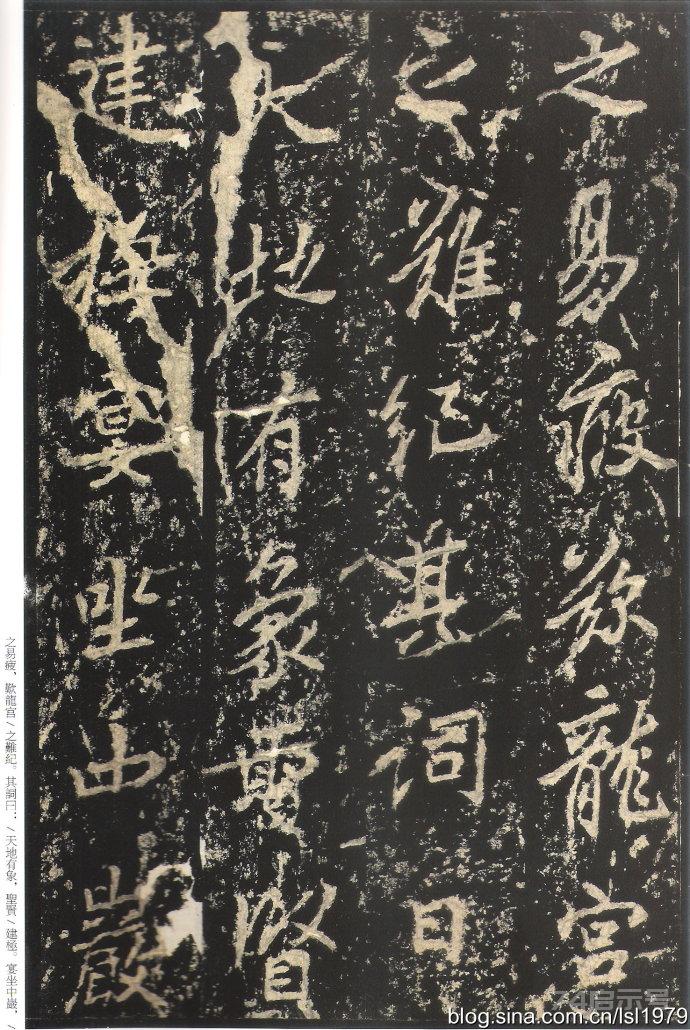 之易疲歎龍宮
之難紀其詞曰
天地有象聖賢
建極宴坐中巖
之易疲，歎龍宮/之難紀。其詞曰：/天地有象，聖賢/建極。宴坐中巖，/
blog.sina.com.cn/lsl1979